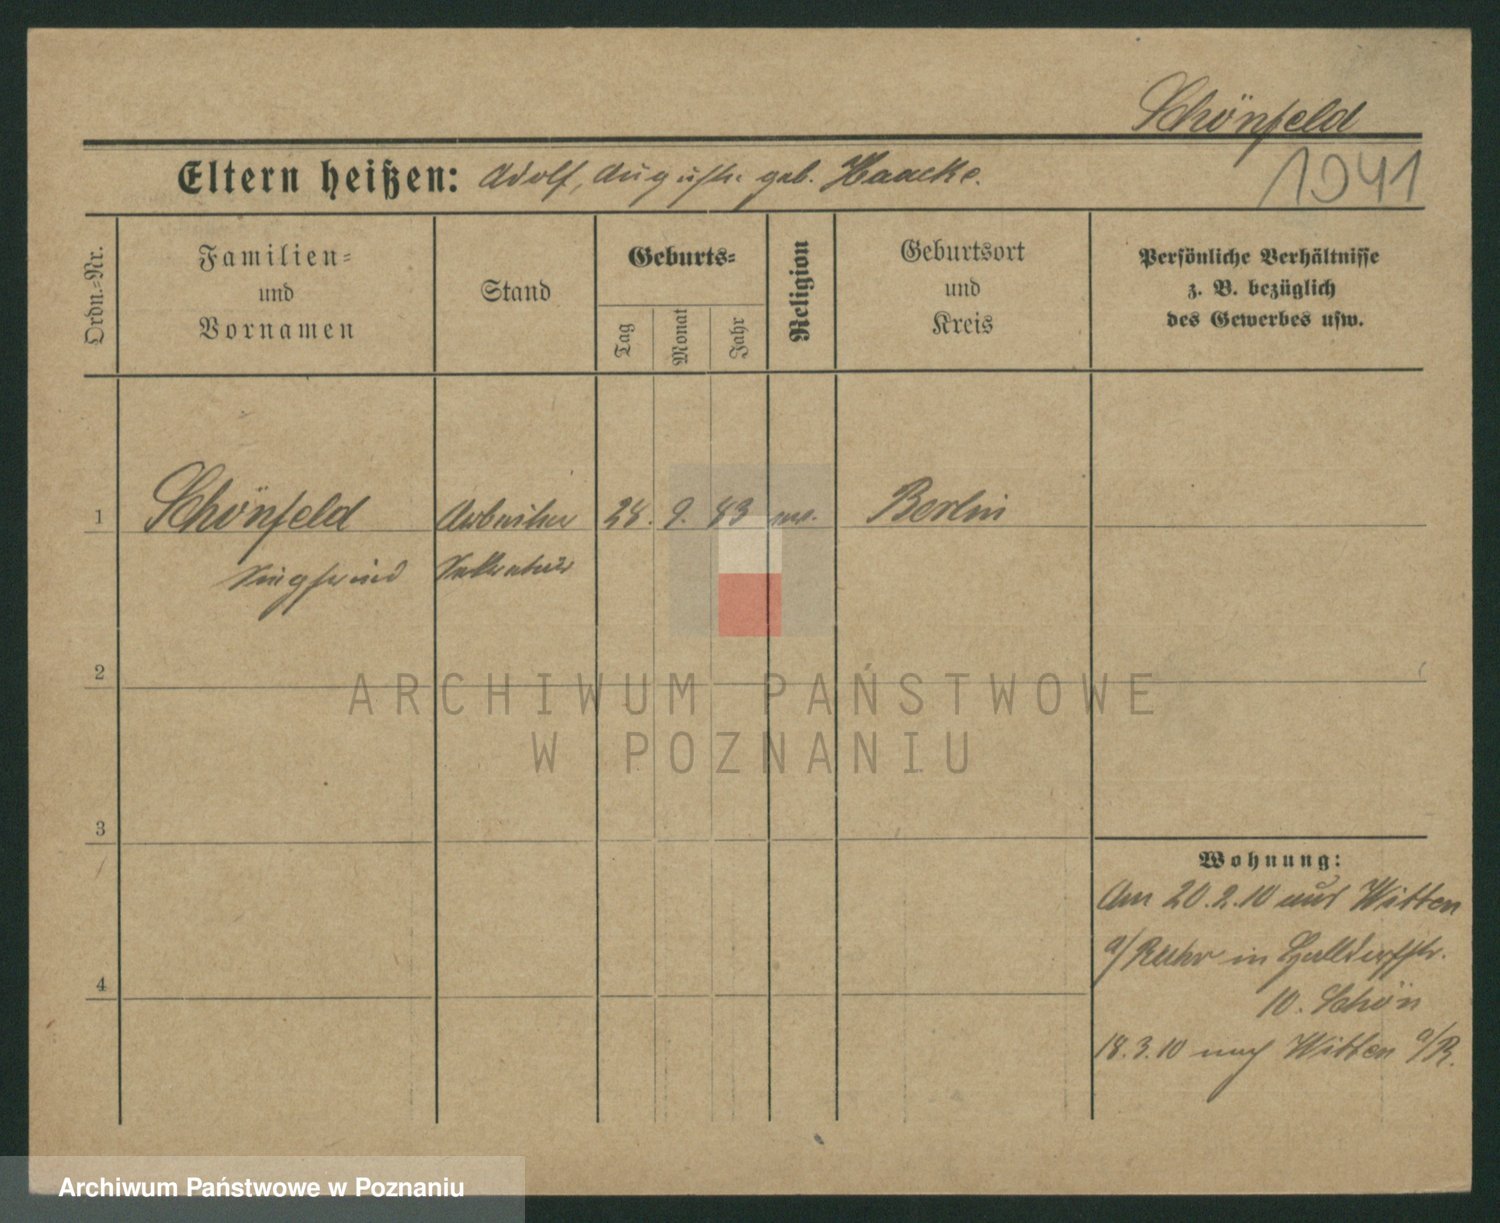 Schönfeld
1941
Eltern heißen: Adolf, Auguste geb. Haacke.
Ordn.-Nr.
Familien-
und
Vornamen
Stand
Geburts-
Tag
Monat
Jahr
Religion
Geburtsort
und
Kreis
Persönliche Verhältnisse
z. B. bezüglich
des Gewerbes usw.
1 Schönfeld Arbeiter 28. 9. 83 ev. Berlin
Siegfried Sekretär
2
ARCHIWUM PAŃSTWOWE
W POZNANIU
3
4
Wohnung:
Am 20.2.10 aus Witten
a/Ruhr in
10. Schön
18.3.10 nach Witten a/R.
Archiwum Państwowe w Poznaniu